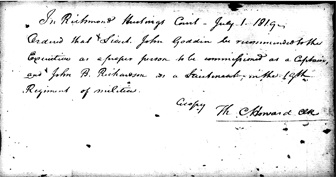 In Richmond Hustings Court - July 1. 1819.
Ordered that Lieut. John Goddin be recommended to the
Executive as a proper person to be commissioned as a Captain,
and John B. Richardson as a Lieutenant in the 19th
Regiment of militia.
A copy
Th. C. Howard Clk